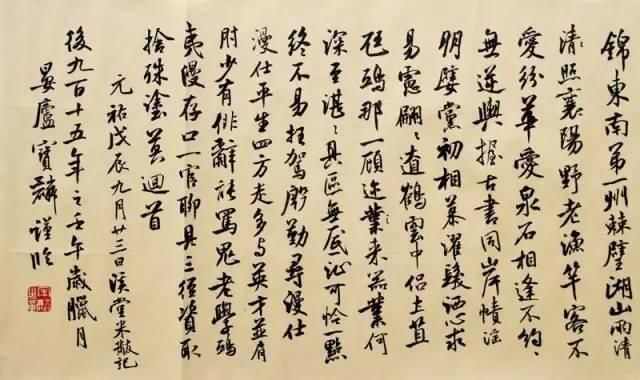 錦東南第一州棘璧湖山兩清
清照襄陽野老漁竿客不
愛紛華愛泉石相逢不約々
無逆輿握古書同岸幘淫
朋嬖黨初相慕濯髮洒心求
易慮翩々遼鶴雲中侶土苴
尫鴟那一顧邇業来器業何
深至湛々具區無底沚可怜一點
終不易枉駕殷勤尋漫仕
漫仕平生四方走多与英才並肩
肘少有俳辭能罵鬼老學鴟
夷漫存口一官聊具三徑資取
捨殊塗莫迴首
元祐戊辰九月廿三日溪堂米黻記
後九百十五年之壬午歲臘月
晏廬寶麟謹臨